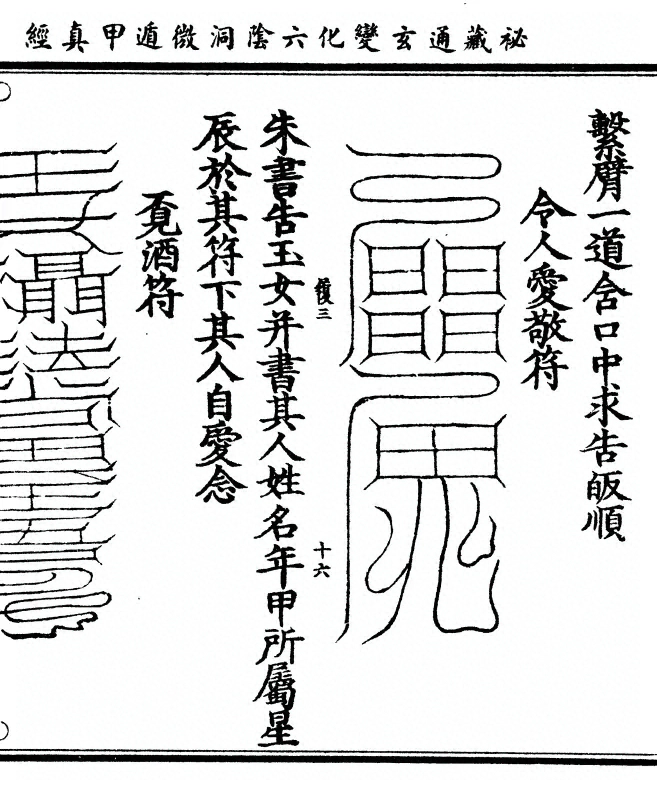 秘藏通玄變化六陰洞微遁甲真經
繫臂一道含口中求告皈順
令人愛敬符
後三
十六
朱書告玉女并書其人姓名年甲所屬星
辰於其符下其人自愛念
覓酒符